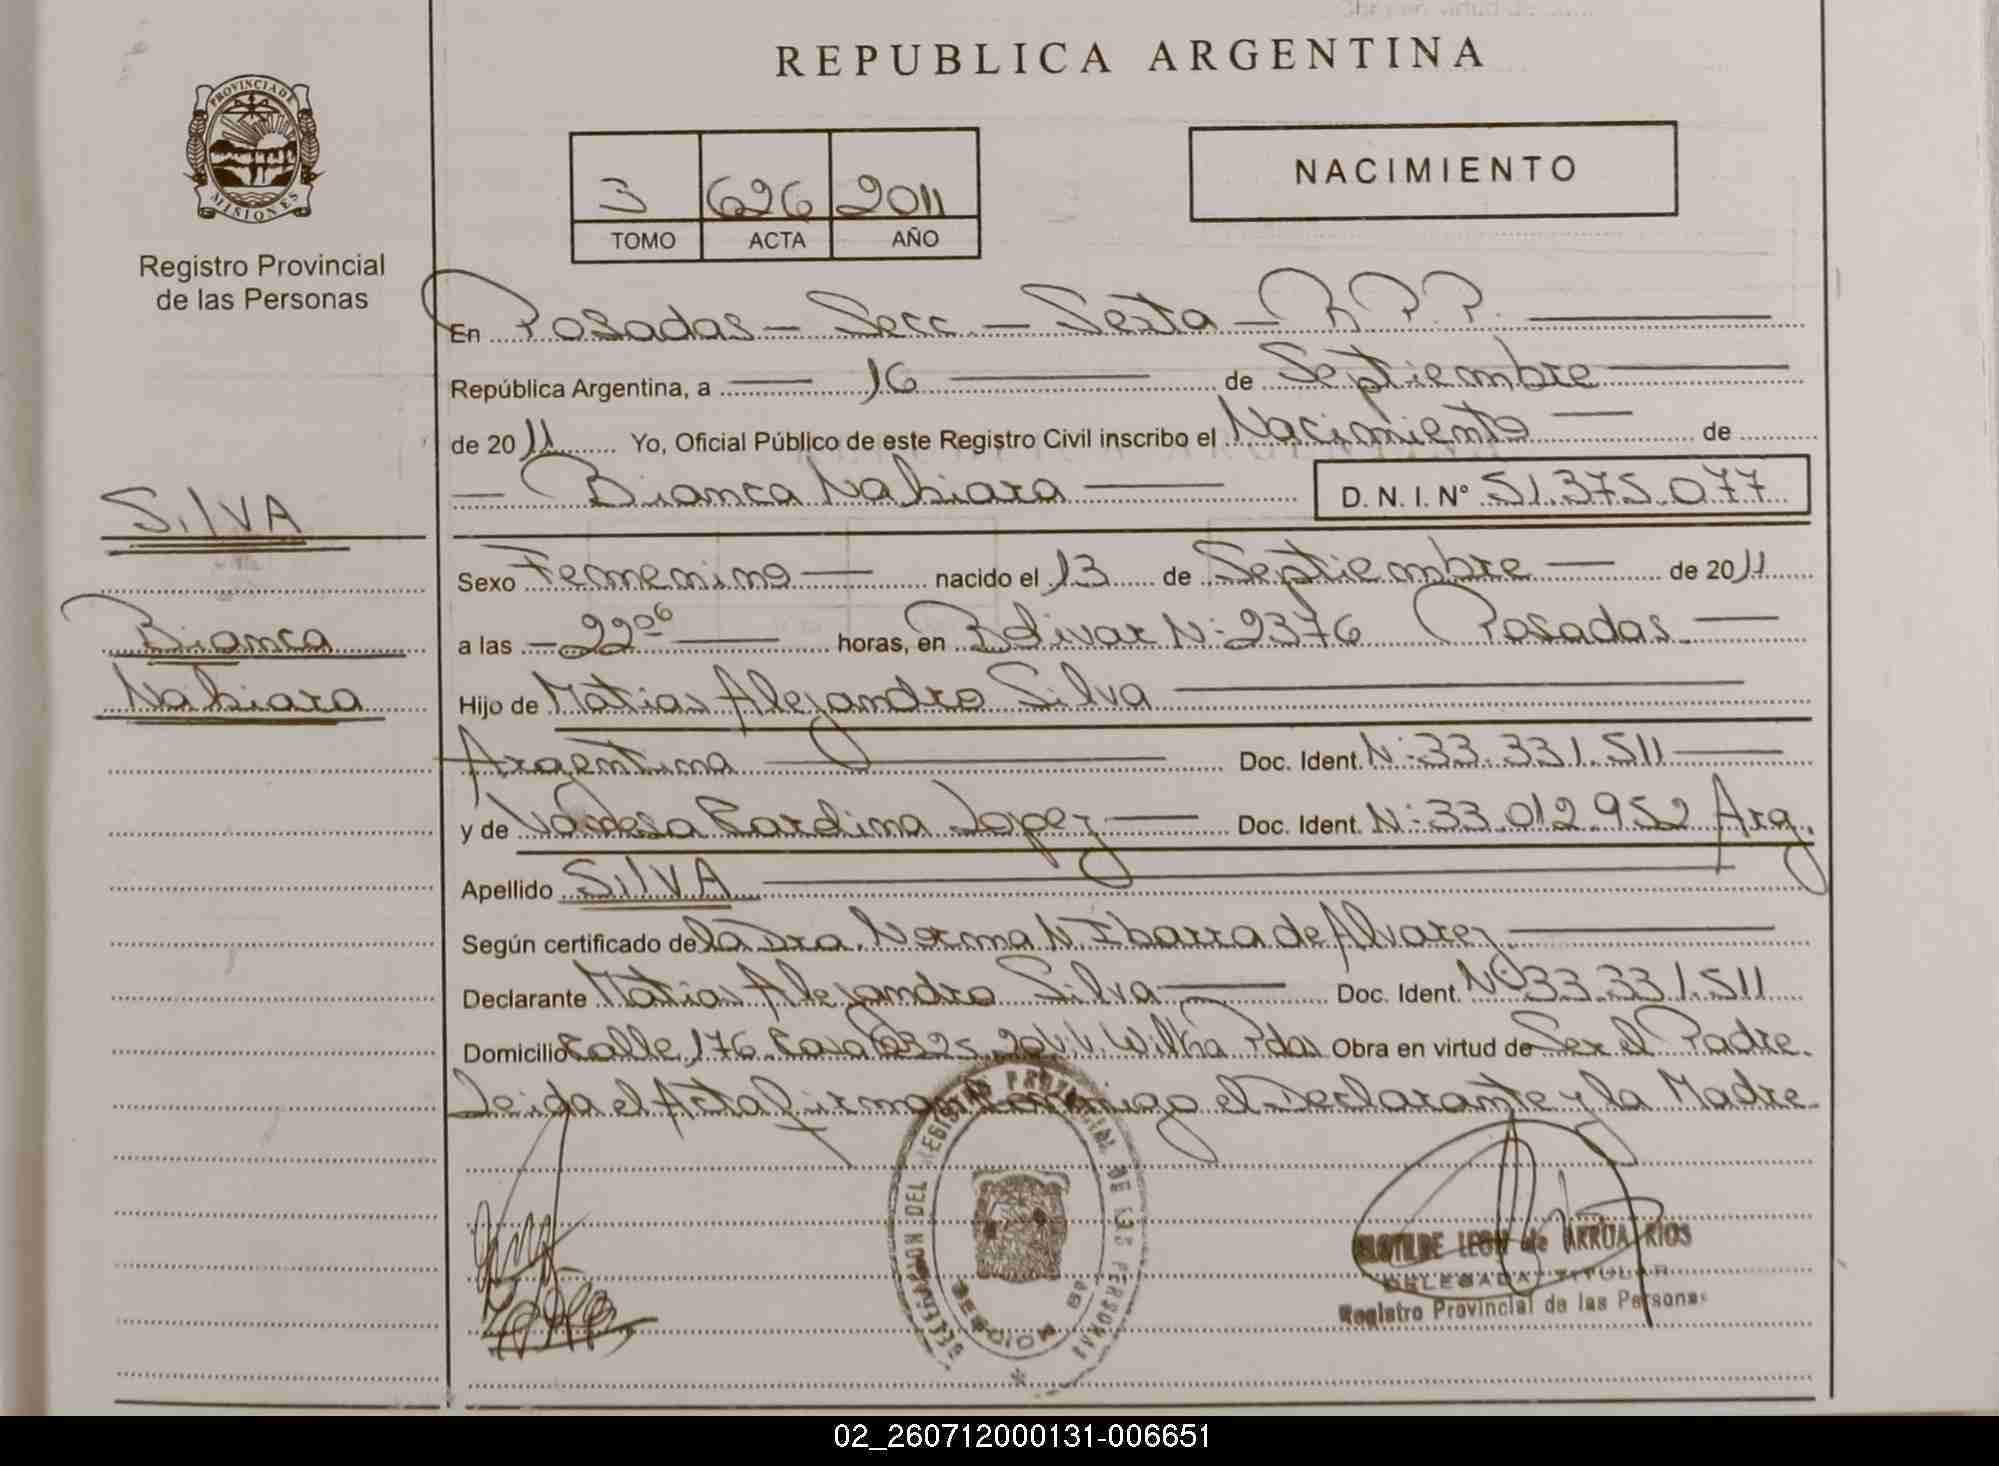 REPUBLICA ARGENTINA
PROVINCIA DE
MISIONES
Registro Provincial
de las Personas
3 626 2011
TOMO ACTA AÑO
NACIMIENTO
En Posadas - Secc. - Sexta - R.P.P.
República Argentina, a 16 de Septiembre
de 2011 Yo, Oficial Público de este Registro Civil inscribo el Nacimiento de
Bianca Nahiara D. N. I. N° 51.375.077
SilVA
Bianca
Nahiara
Sexo Femenino nacido el 13 de Septiembre de 2011
a las 22 06 horas, en Bolivar N: 2376 Posadas
Hijo de Matias Alejandro Silva
Argentina Doc. Ident. N: 33.331.511
y de Vanesa Carolina Lopez Doc. Ident. N: 33.012.952 Arg.
Apellido SilVA
Según certificado de la Dra. Norma N Ibarra de Alvarez
Declarante Matias Alejandro Silva Doc. Ident. N° 33.331.511
Domicilio Calle 176 Casa Pdas Obra en virtud de Ser el Padre.
Leida el Acta firman conmigo el Declarante y la Madre.
DELEGACION DEL REGISTRO PROVINCIAL DE LAS PERSONAS
SECCION 6ª
CLOTILDE LEON de ARRUA RIOS
DELEGADA TITULAR
Registro Provincial de las Personas
02_260712000131-006651